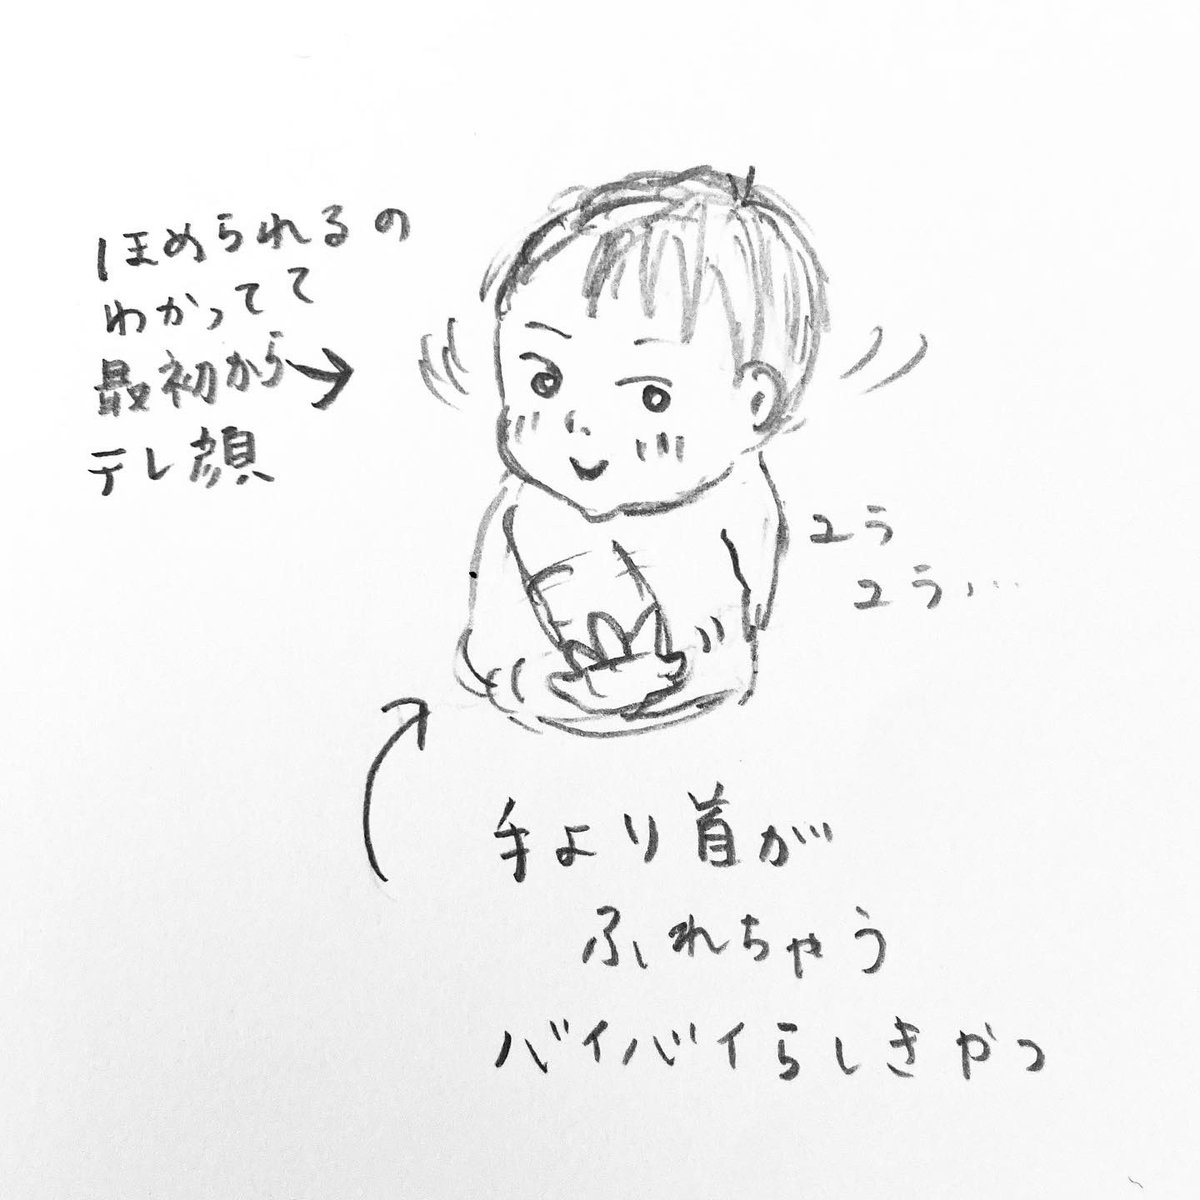 ほめられるの
わかってて
最初から→
テレ顔
ユラ
ユラ…
手より首が
ふれちゃう
バイバイらしきやつ